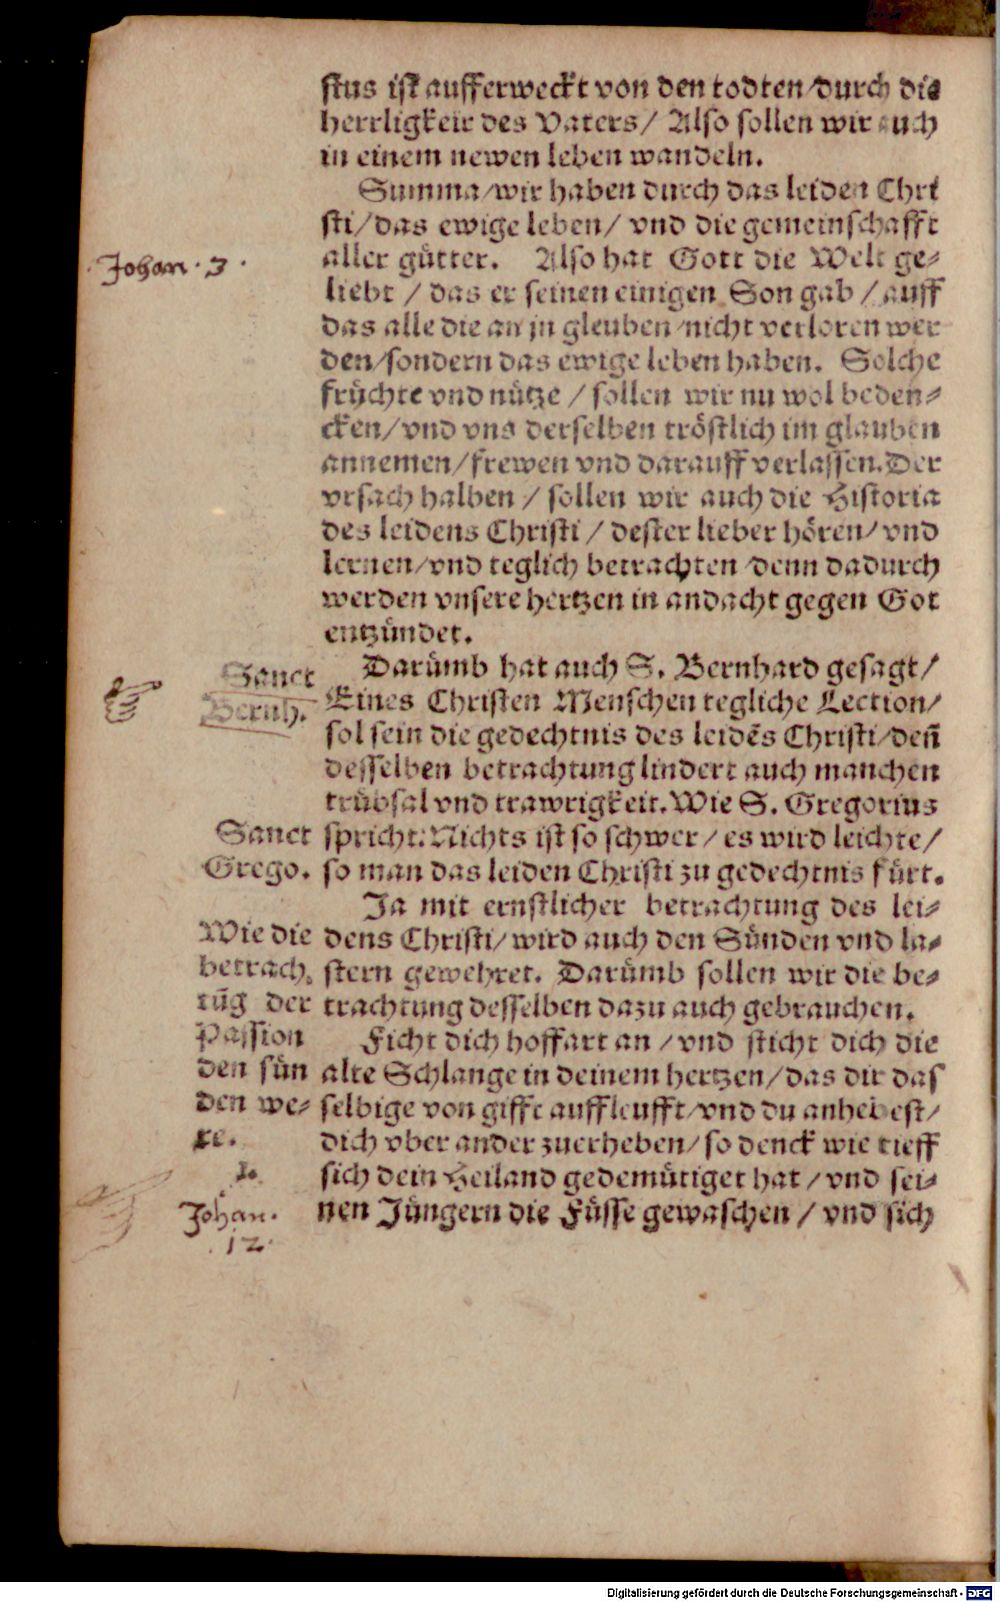 stus ist aufferweckt von den todten/durch die
herrligkeit des Vaters/ Also sollen wir auch
in einem newen leben wandeln.
Summa/wir haben durch das leiden Chri
sti/das ewige leben/ vnd die gemeinschafft
aller gütter. Also hat Gott die Welt ge-
Johan. 3.
liebt / das er seinen einigen Son gab / auff
das alle die an jn gleuben/nicht verloren wer
den/sondern das ewige leben haben. Solche
früchte vnd nütze / sollen wir nu wol beden-
cken/vnd vns derselben tröstlich im glauben
annemen/frewen vnd darauff verlassen. Der
vrsach halben / sollen wir auch die Historia
des leidens Christi / dester lieber hören/ vnd
lernen/vnd teglich betrachten/denn dadurch
werden vnsere hertzen in andacht gegen Got
entzündet.
Darümb hat auch S. Bernhard gesagt/
Sanct
Bernh.
Eines Christen Menschen tegliche Lection/
sol sein die gedechtnis des leidēs Christi/den̄
desselben betrachtung lindert auch manchen
trübsal vnd trawrigkeit. Wie S. Gregorius
spricht: Nichts ist so schwer/ es wird leichte/
Sanct
Grego.
so man das leiden Christi zu gedechtnis fürt.
Ja mit ernstlicher betrachtung des lei-
dens Christi/ wird auch den Sünden vnd la-
stern gewehret. Darümb sollen wir die be-
trachtung desselben dazu auch gebrauchen.
Wie die
betrach.
tūg der
Passion
den sün
den we-
re.
Ficht dich hoffart an / vnd sticht dich die
alte Schlange in deinem hertzen/das dir das
selbige von gifft auffleufft/vnd du anhebest/
dich vber ander zuerheben/so denck wie tieff
sich dein Heiland gedemütiget hat / vnd sei-
nen Jüngern die Füsse gewaschen / vnd sich
1.
Johan.
12.
Digitalisierung gefördert durch die Deutsche Forschungsgemeinschaft - DFG